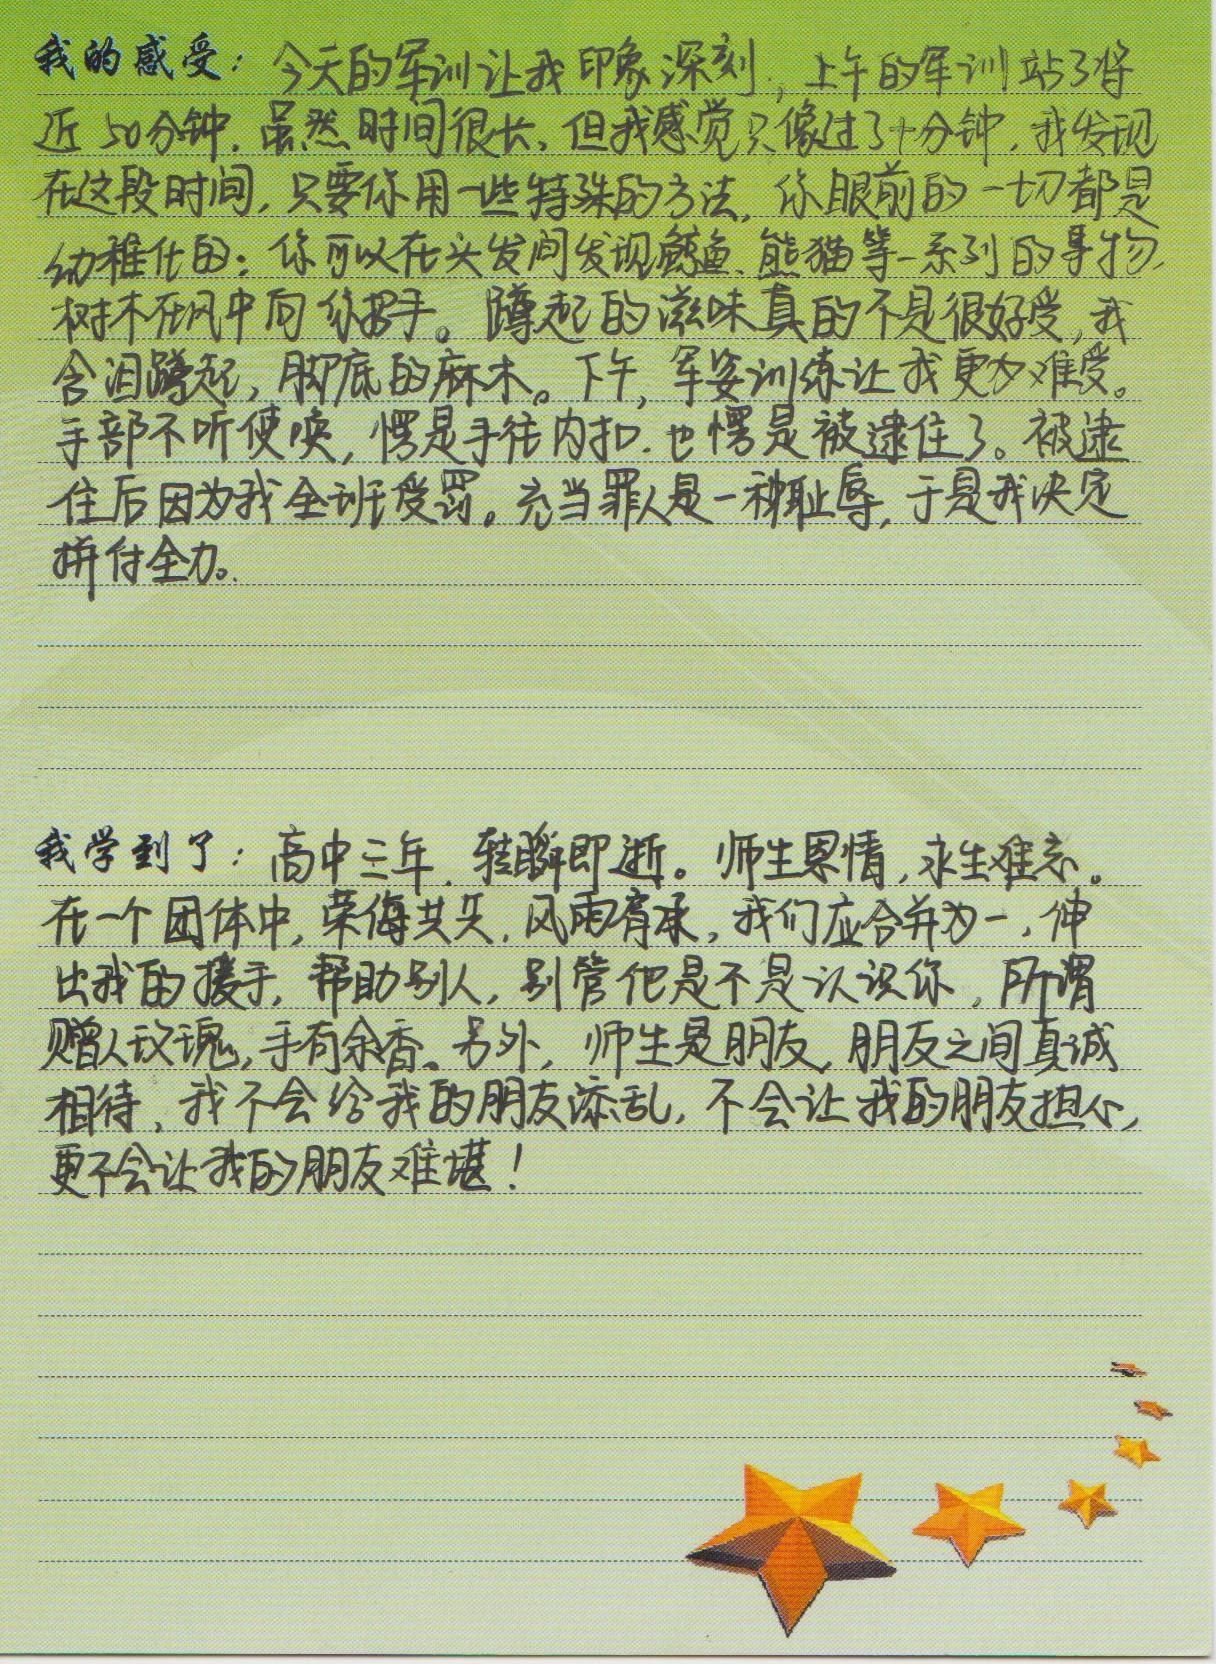 我的感受：今天的军训让我印象深刻，上午的军训站了将
近50分钟，虽然时间很长，但我感觉只像过了十分钟，我发现
在这段时间，只要你用一些特殊的方法，你眼前的一切都是
幼稚化的：你可以在头发间发现鲸鱼、熊猫等一系列的事物，
树木在风中向你招手。蹲起的滋味真的不是很好受，我
含泪蹲起，脚底的麻木。下午，军姿训练让我更加难受。
手部不听使唤，愣是手往内扣，也愣是被逮住了。被逮
住后因为我全班受罚。充当罪人是一种耻辱，于是我决定
拼付全力。
我学到了：高中三年，转瞬即逝。师生恩情，永生难忘。
在一个团体中，荣侮共失，风雨育承，我们应合并为一，伸
出我的援手，帮助别人，别管他是不是认识你，所谓
赠人玫瑰，手有余香。另外，师生是朋友，朋友之间真诚
相待，我不会给我的朋友添乱，不会让我的朋友担心，
更不会让我的朋友难堪！